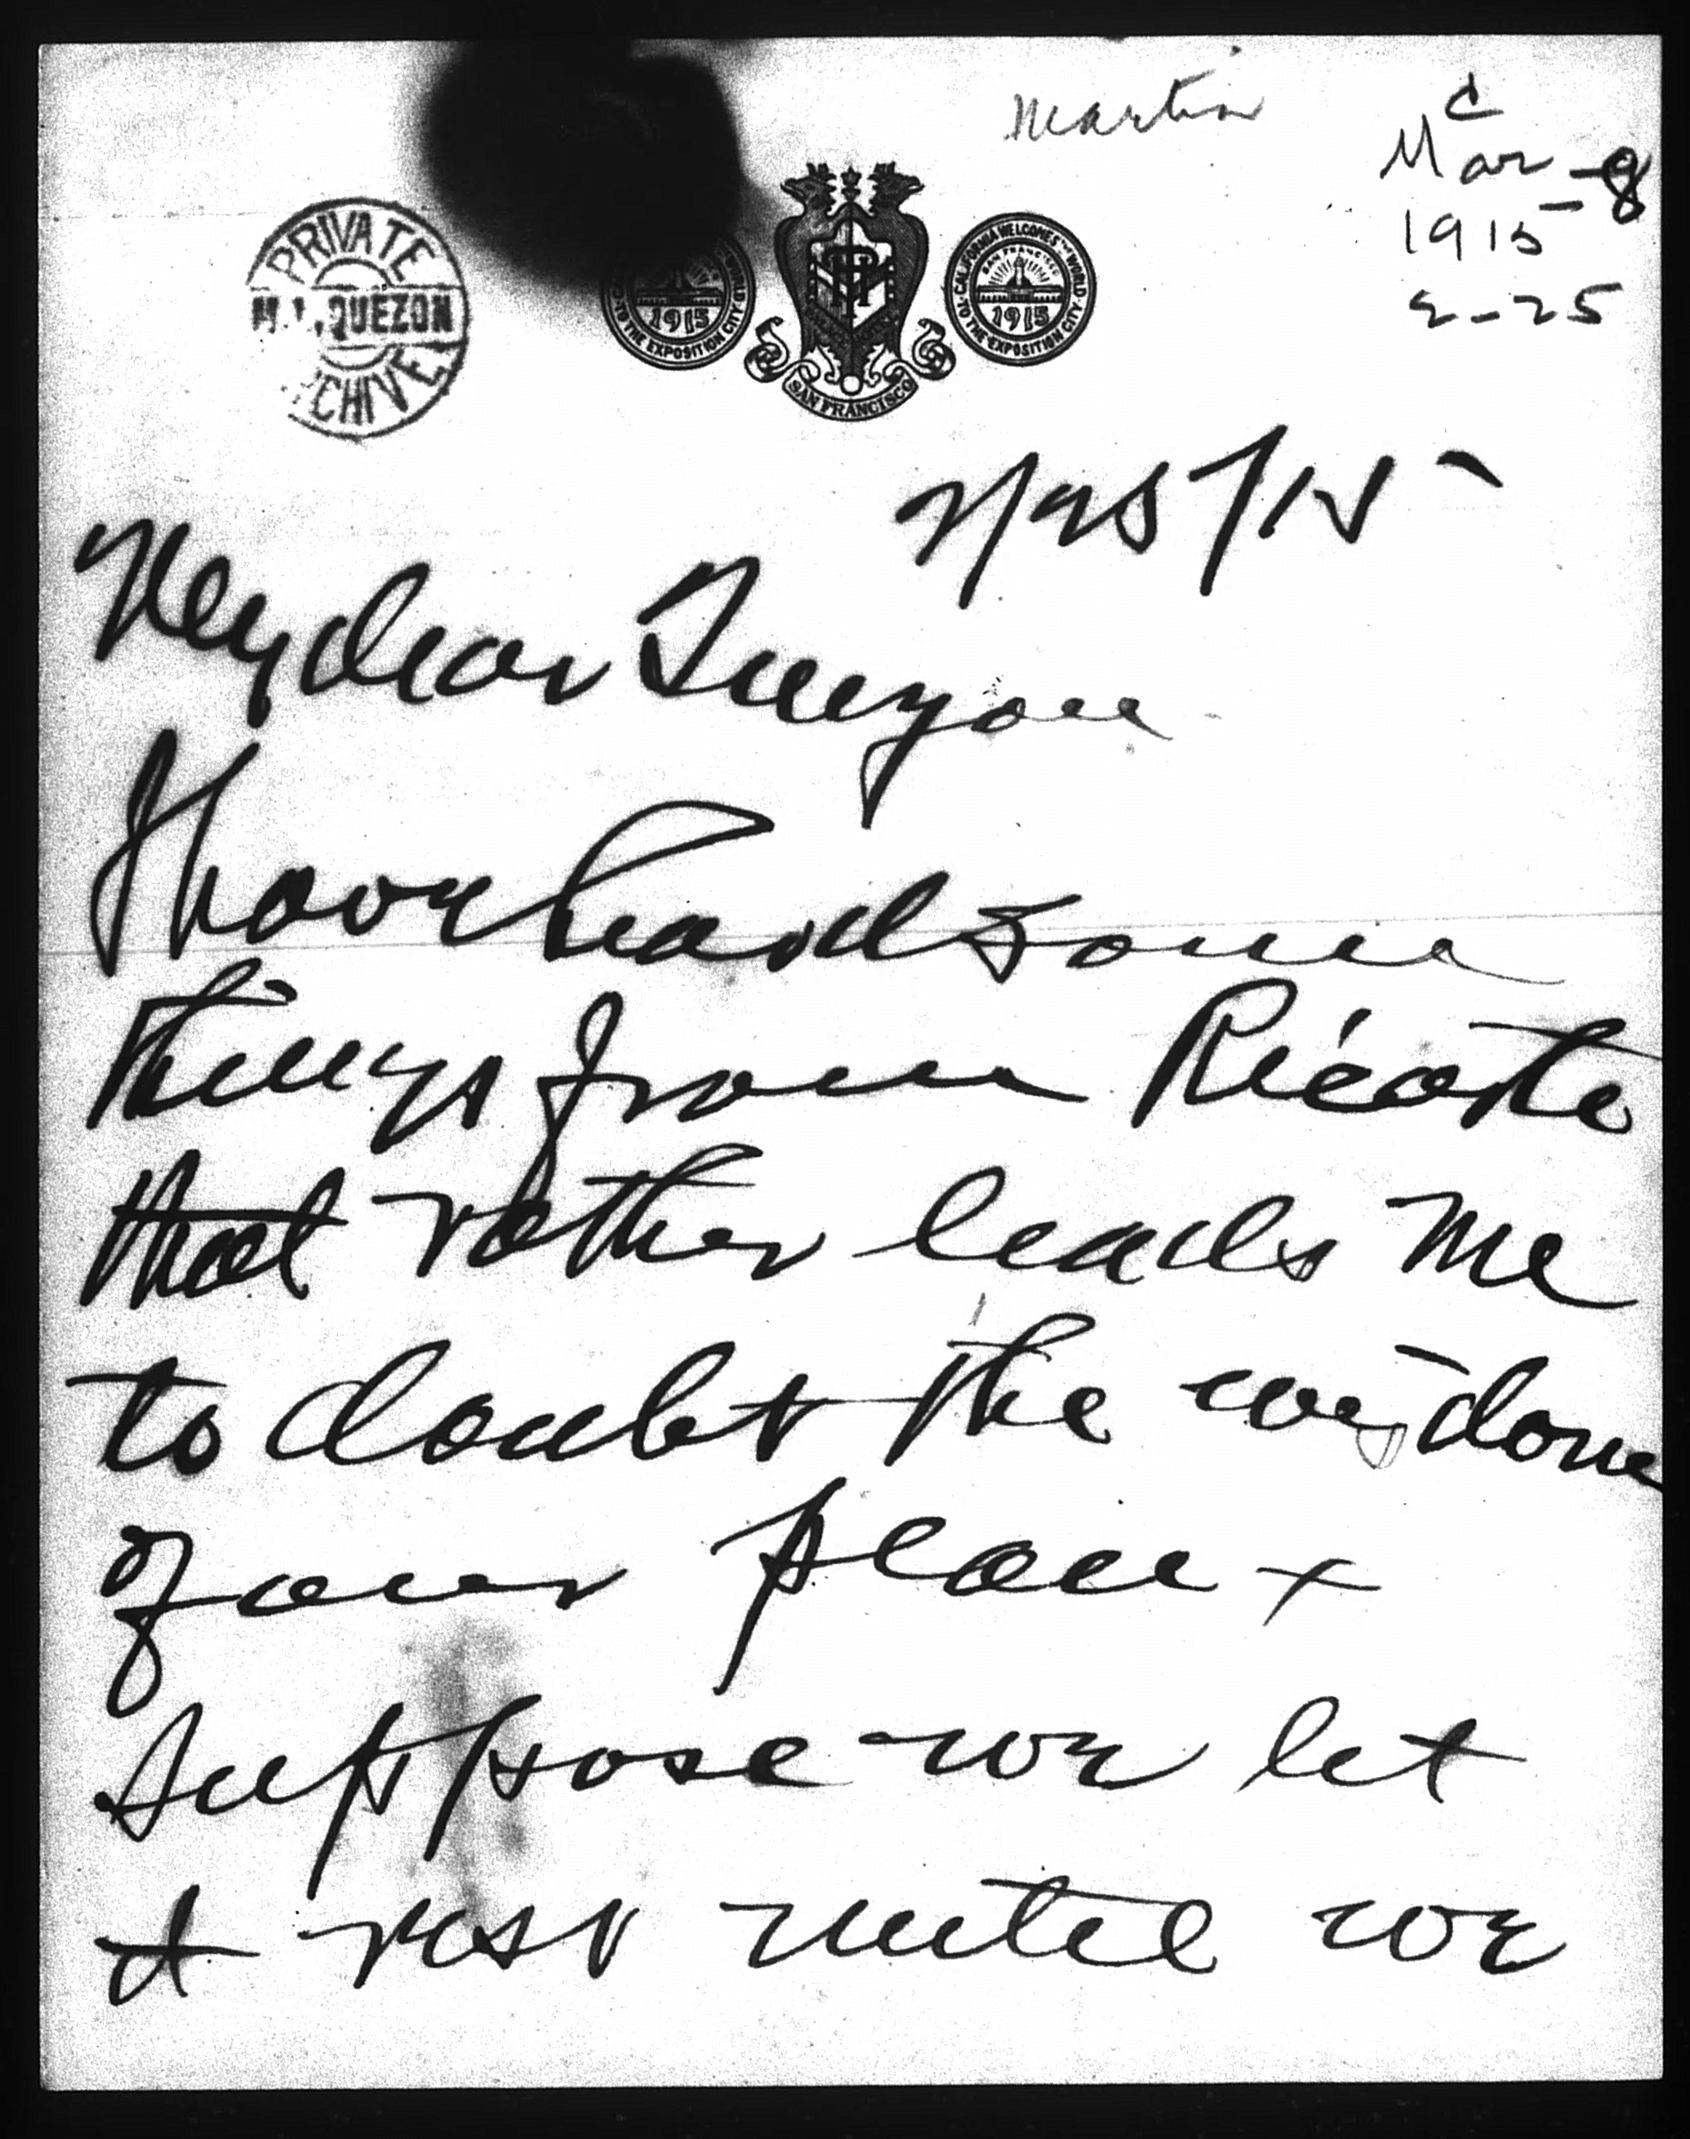 Martin
c
Mar - 8
1915
2-25
PRIVATE
M. L. QUEZON
CHIVE
1915
TO THE EXPOSITION CITY
SAN FRANCISCO
CALIFORNIA WELCOMES THE WORLD
SAN FRANCISCO
1915
TO THE EXPOSITION CITY
2/25/15
My dear Quezon
I have heard some
things from Ricarte
that rather leads me
to doubt the wisdom
of our plan +
suppose we let
it rest until we